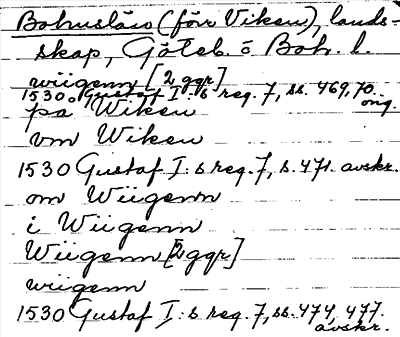 Bohuslän (förr Viken), land-
skap, Göteb. o Boh. l.
wiigenn [2 ggr]
1530 Gustaf I:s reg. 7, ss. 469, 70.
orig.
på Wiken
vm Wiken
1530 Gustaf I:s reg. 7, s. 471. avskr.
om Wiigenn
i Wiigenn
Wiigenn [2 ggr]
wiigenn
1530 Gustaf I:s reg. 7, ss. 474, 477.
avskr.